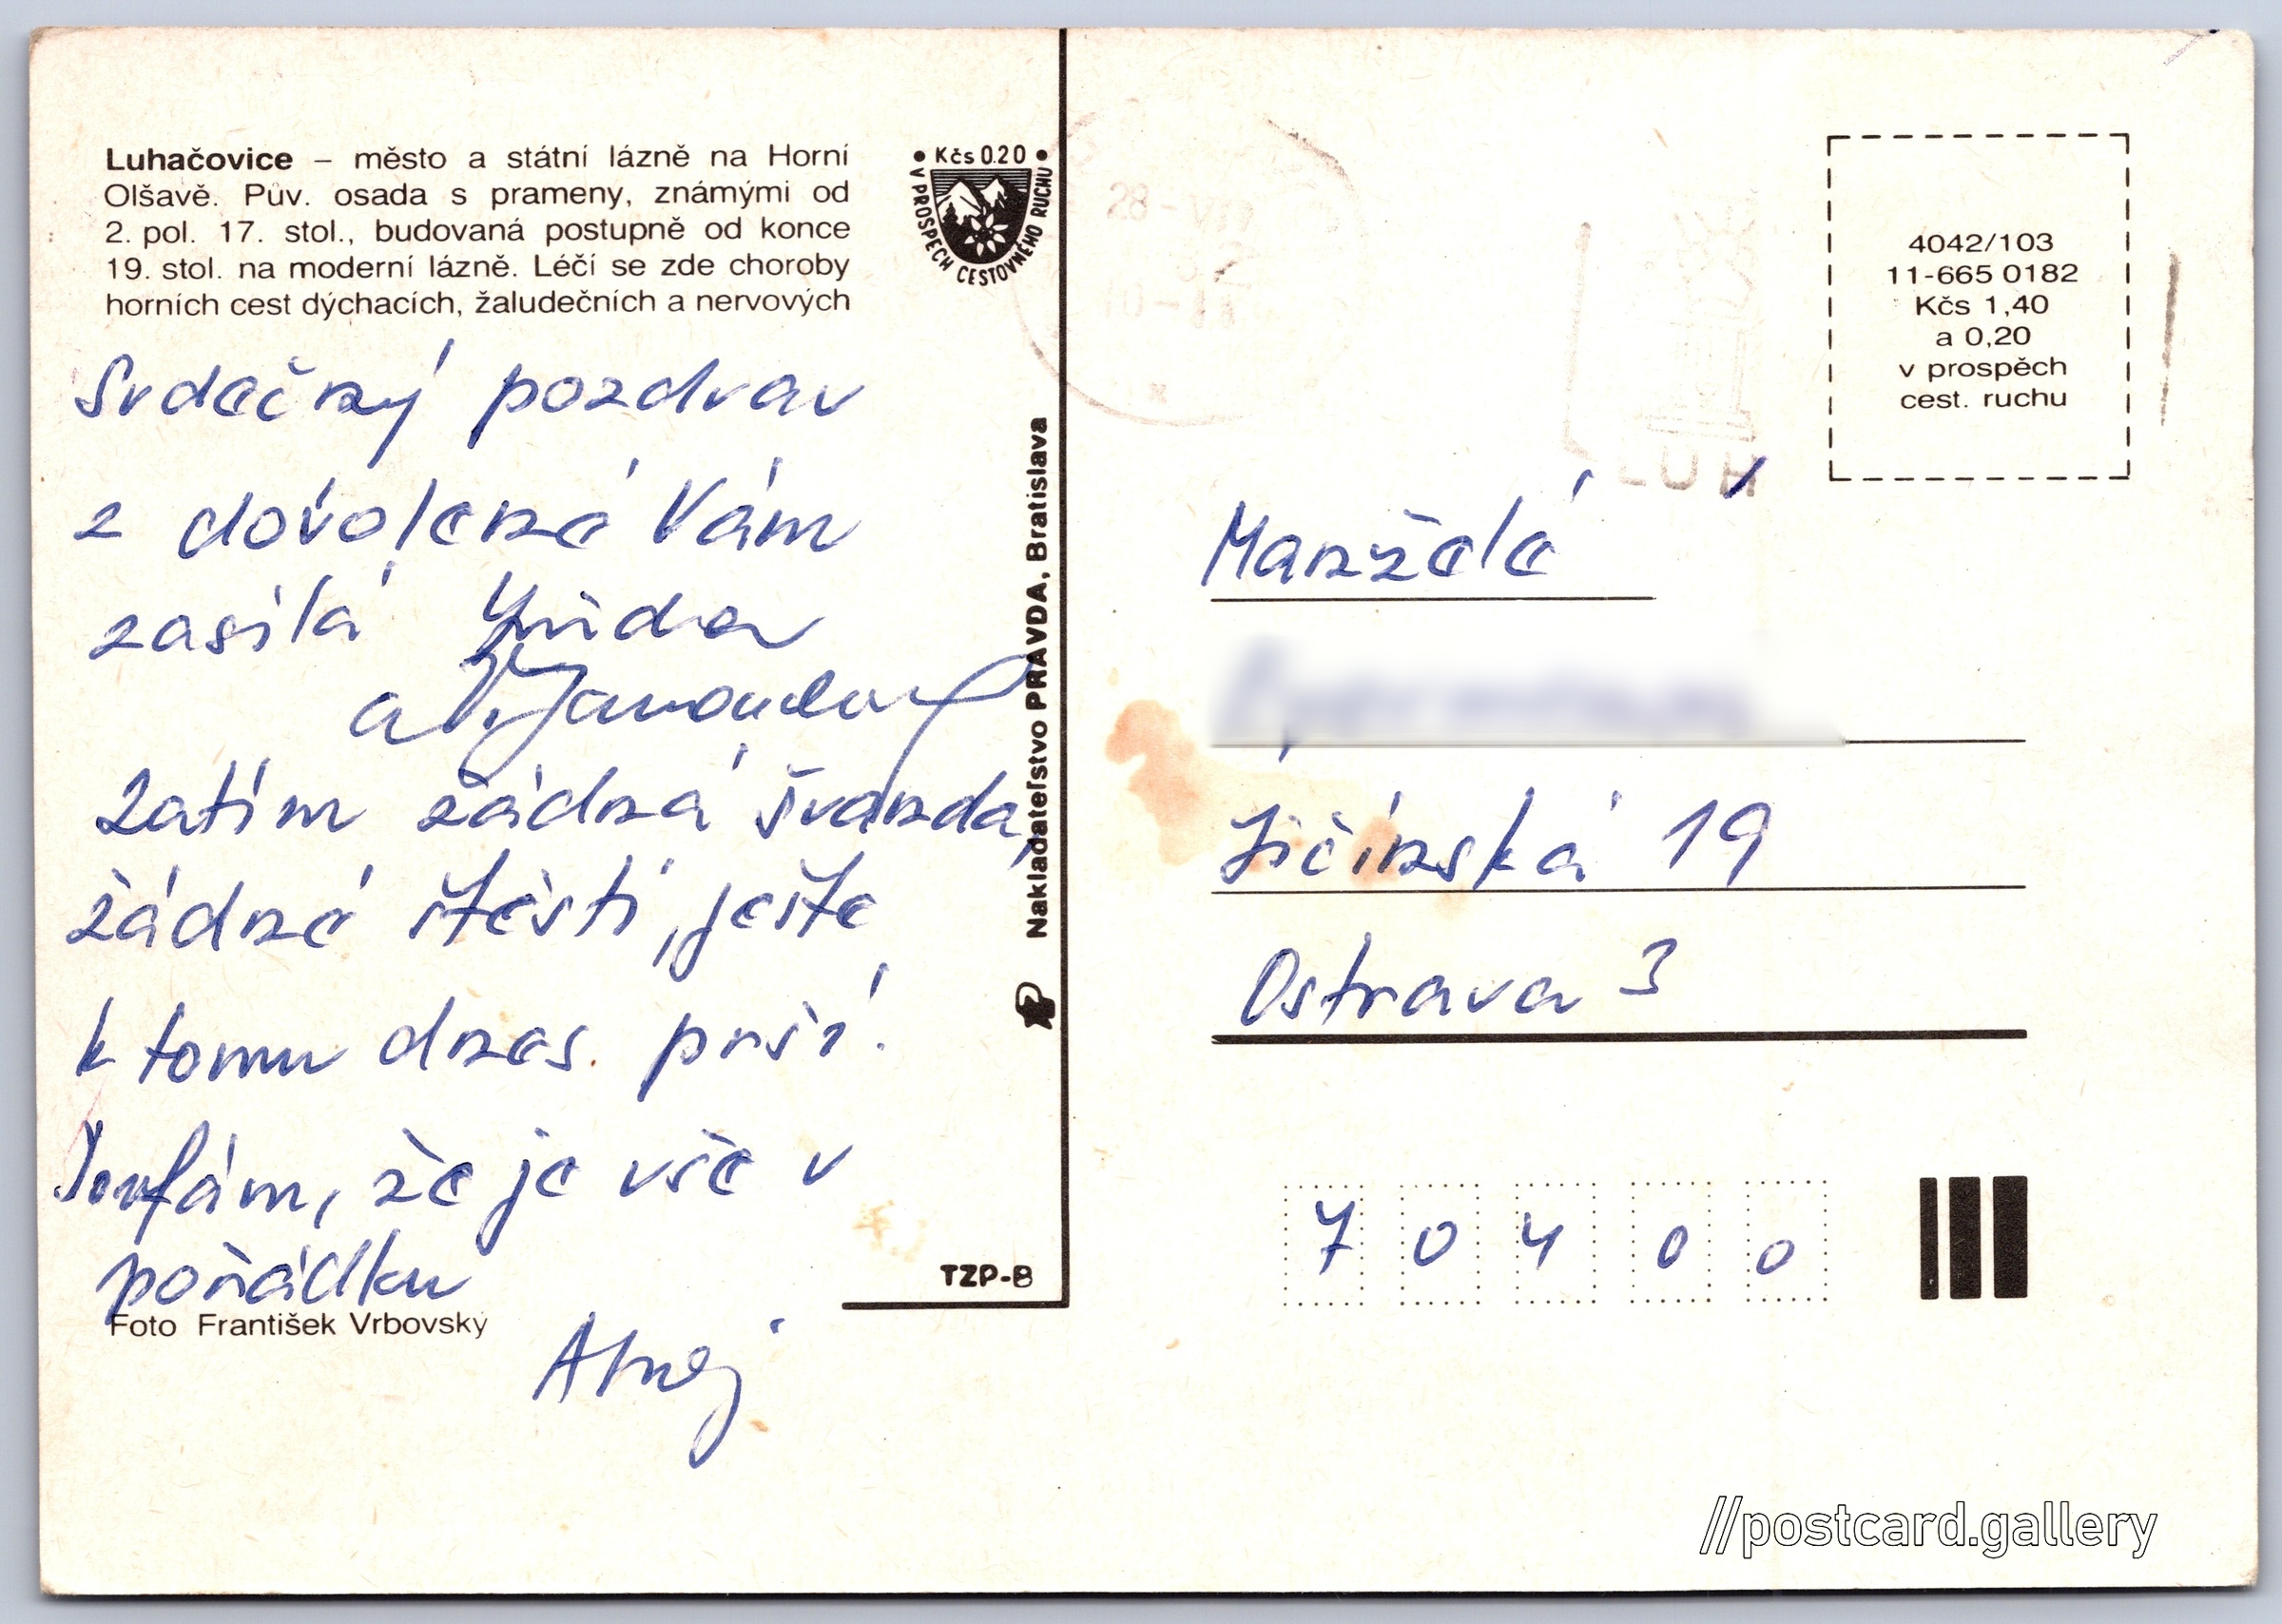 Luhačovice – město a státní lázně na Horní
Olšavě. Pův. osada s prameny, známými od
2. pol. 17. stol., budovaná postupně od konce
19. stol. na moderní lázně. Léčí se zde choroby
horních cest dýchacích, žaludečních a nervových
• Kčs 0.20 •
V PROSPECH CESTOVNÉHO RUCHU
Srdečný pozdrav
z dovolené Vám
zasílá
a
Zatím žádná švanda,
žádné štěstí, ješte
k tomu dnes prší.
Doufám, že je vše v
pořádku
Foto František Vrbovský
Nakladateľstvo PRAVDA, Bratislava
TZP-B
28 - VII
LUH
4042/103
11-665 0182
Kčs 1,40
a 0,20
v prospěch
cest. ruchu
Manželé
Jičínská 19
Ostrava 3
7 0 4 0 0
//postcard.gallery